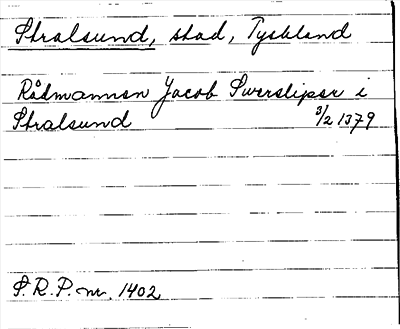 Stralsund, stad, Tyskland
Rådmannen Jacob Swersliper i
Stralsund 3/2 1379
S.R.P. nr. 1402